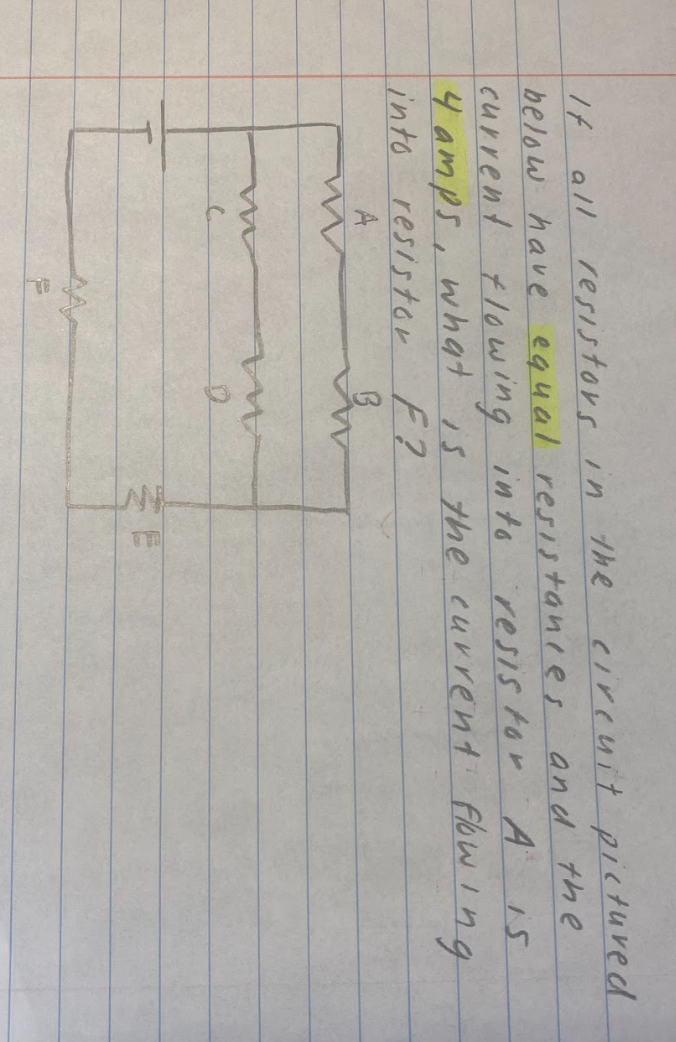 If all resistors in the circuit pictured
below have equal resistances and the
current flowing into resistor A is
4 amps, what is the current flowing
into resistor F?
A
B
C
D
E
F